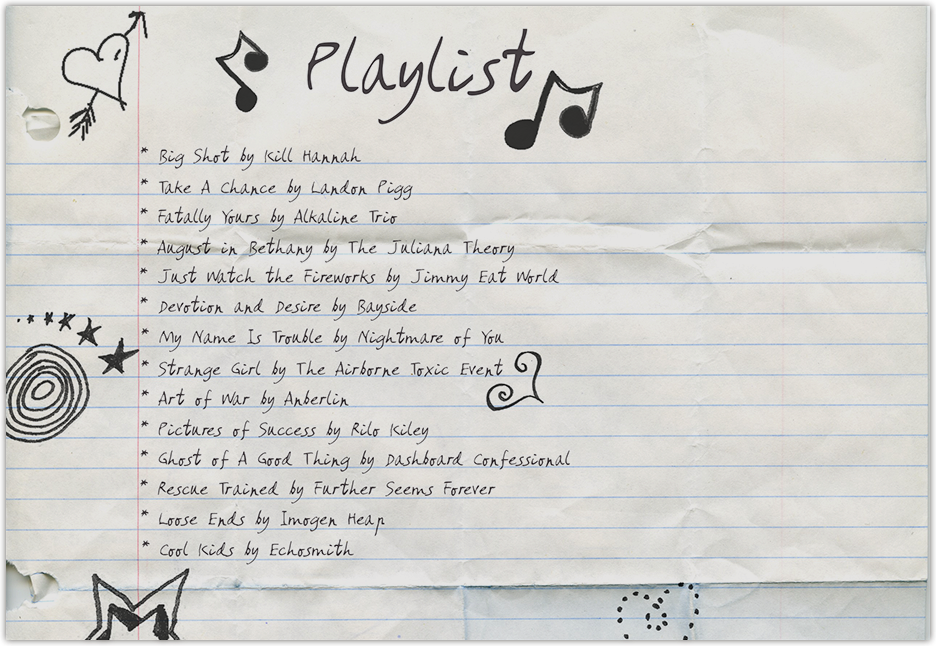 Playlist
* Big Shot by Kill Hannah
* Take A Chance by Landon Pigg
* Fatally Yours by Alkaline Trio
* August in Bethany by The Juliana Theory
* Just Watch the Fireworks by Jimmy Eat World
* Devotion and Desire by Bayside
* My Name Is Trouble by Nightmare of You
* Strange Girl by The Airborne Toxic Event
* Art of War by Anberlin
* Pictures of Success by Rilo Kiley
* Ghost of A Good Thing by Dashboard Confessional
* Rescue Trained by Further Seems Forever
* Loose Ends by Imogen Heap
* Cool Kids by Echosmith